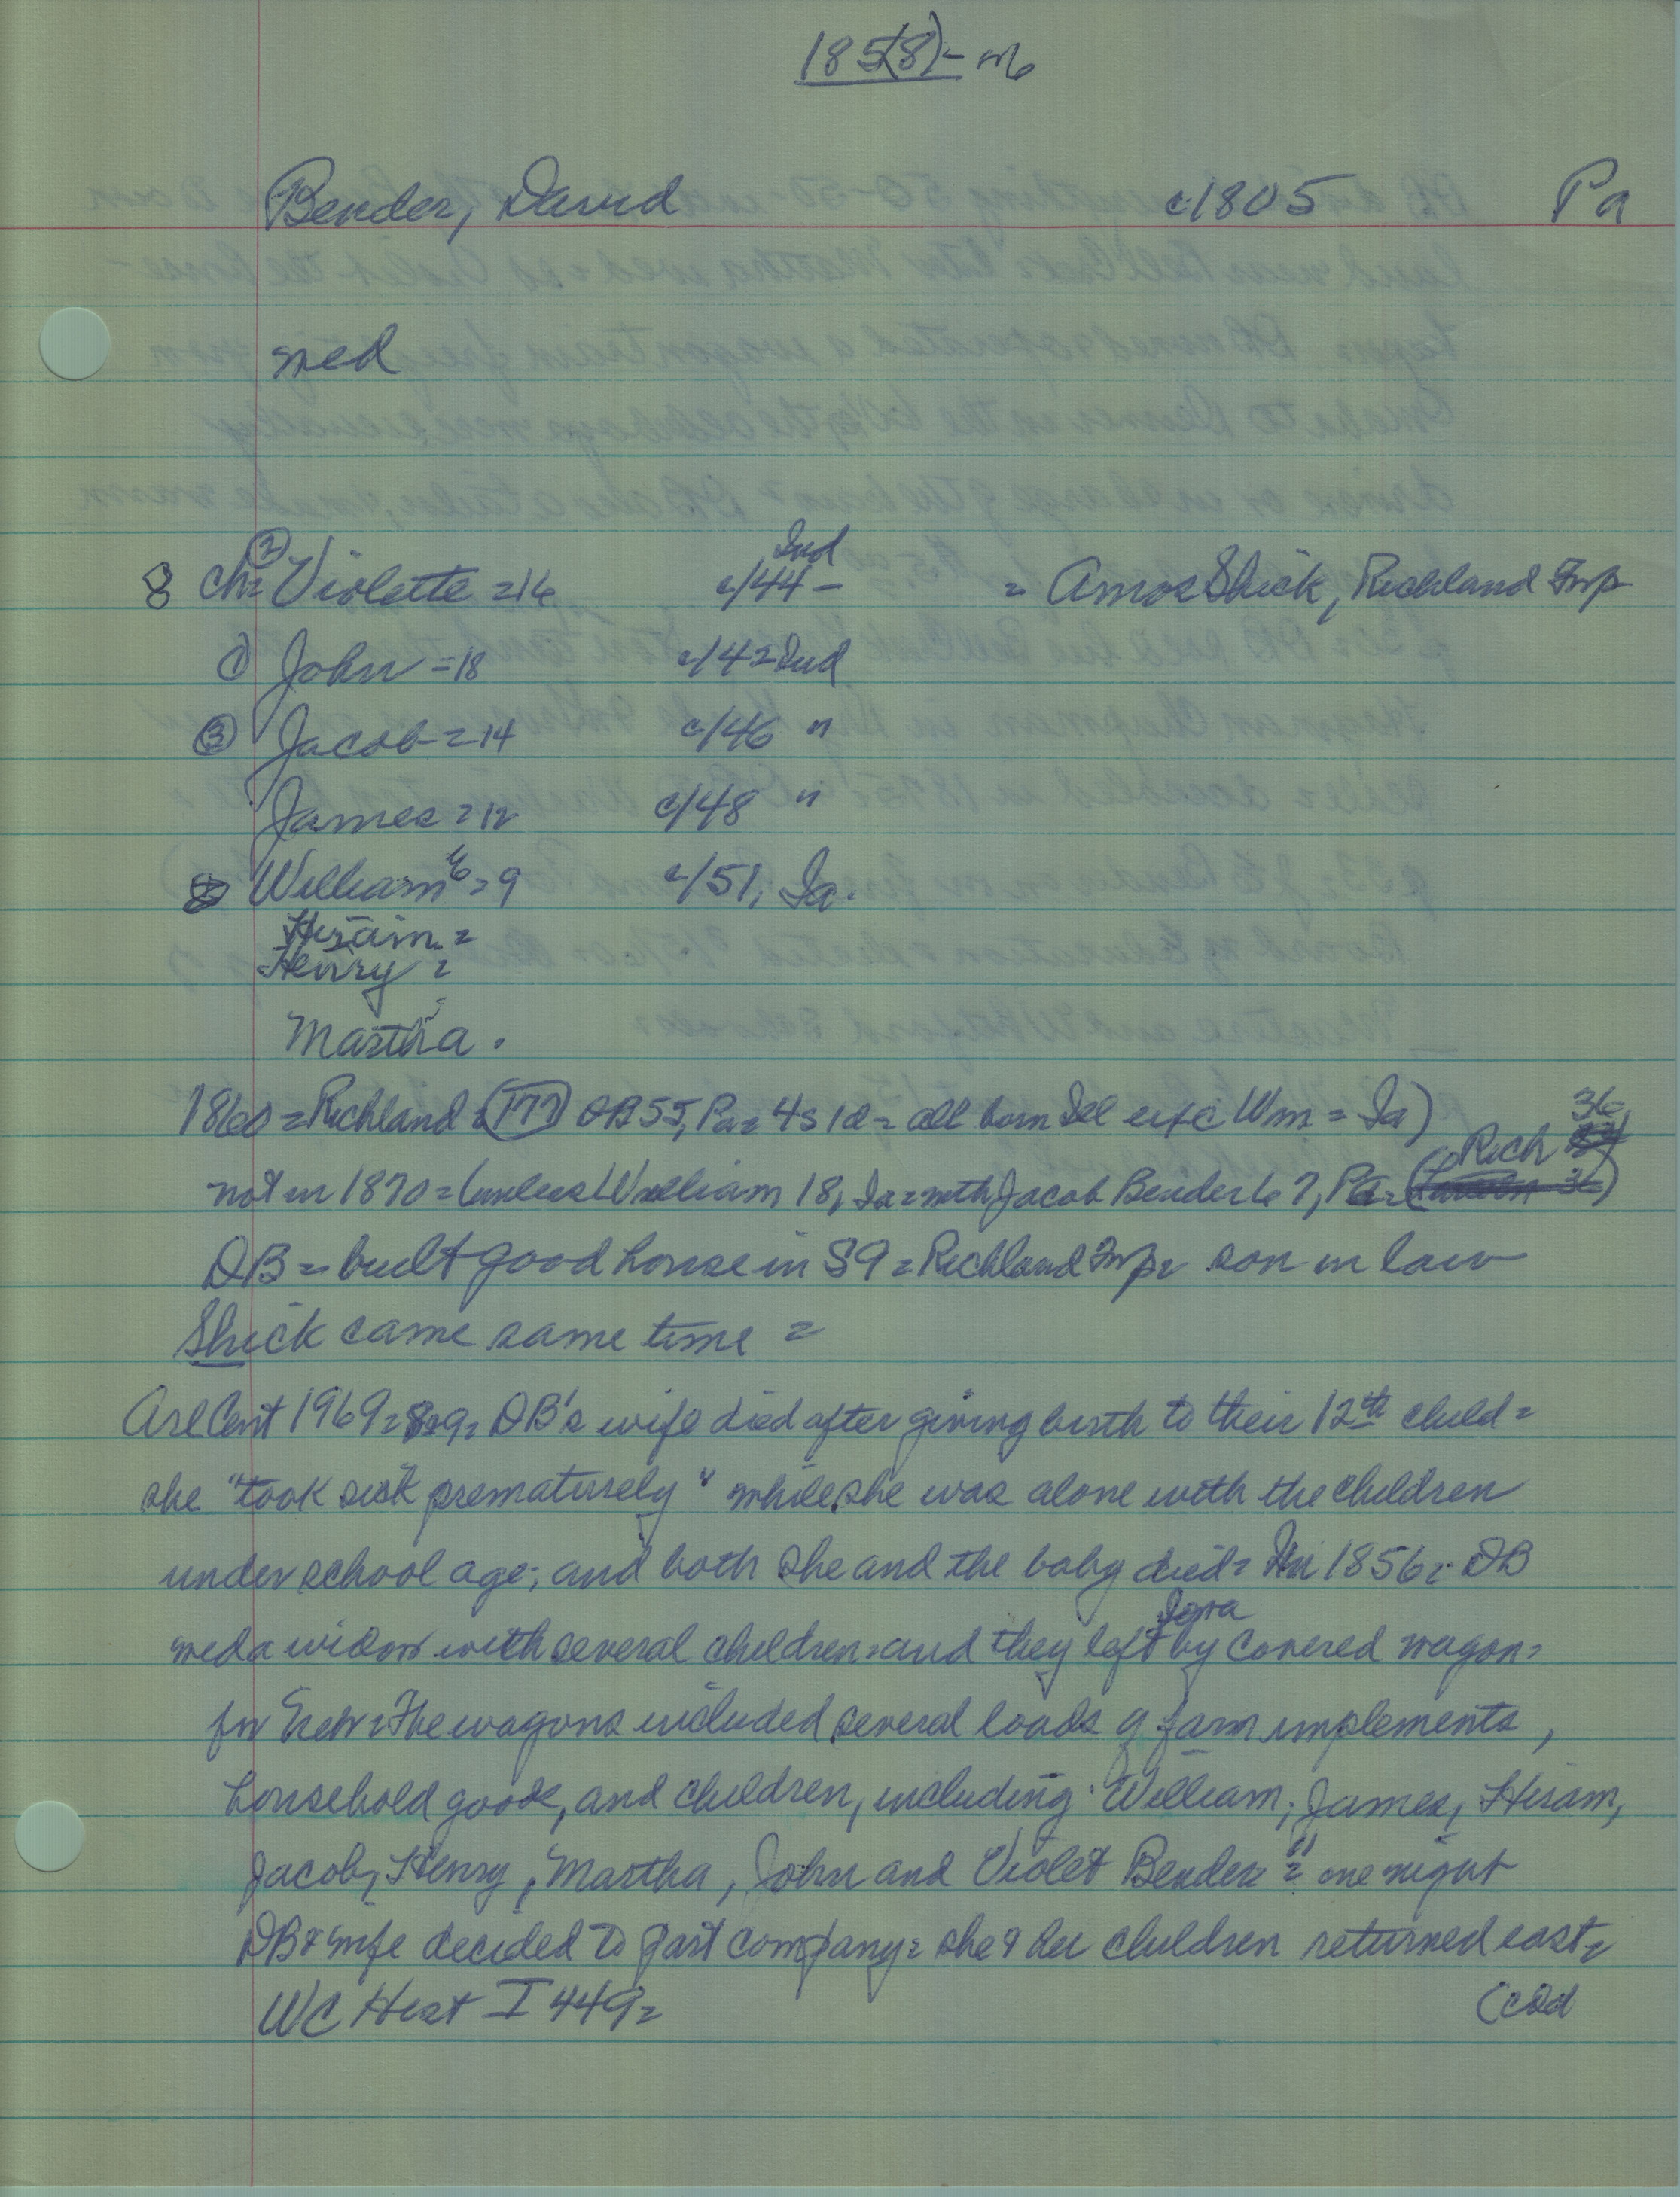 185(8)- m
Bender, David c1805 Pa
med
8 ch= ② Violette =16 c/44 - Ind = Amos Shick, Richland Twp
① John =18 c/42 Ind
③ Jacob =14 c/46 "
James =12 c/48 "
William =9 c/51, Ia.
Hiram =
Henry =
Martha.
1860 = Richland = (177) DB 55, Pa = 4s 1d = all born Ill exc Wm = Ia)
not in 1870 = (unless William 18, Ia = with Jacob Bender 67, Pa = (Rich 36)
DB = built good house in S9 = Richland Twp = son in law
Shick came same time =
Arl Cent 1969 = 8-9 = DB's wife died after giving birth to their 12th child =
she "took sick prematurely" while she was alone with the children
under school age; and both she and the baby died = In 1856 = DB
med a widow with several children = and they left Iowa by covered wagon =
for The wagons included several loads of farm implements,
household goods, and children, including William, James, Hiram,
Jacob, Henry, Martha, John and Violet Bender" = one night
DB & wife decided to part company = she & her children returned east =
WC Hist I 449 = (cod